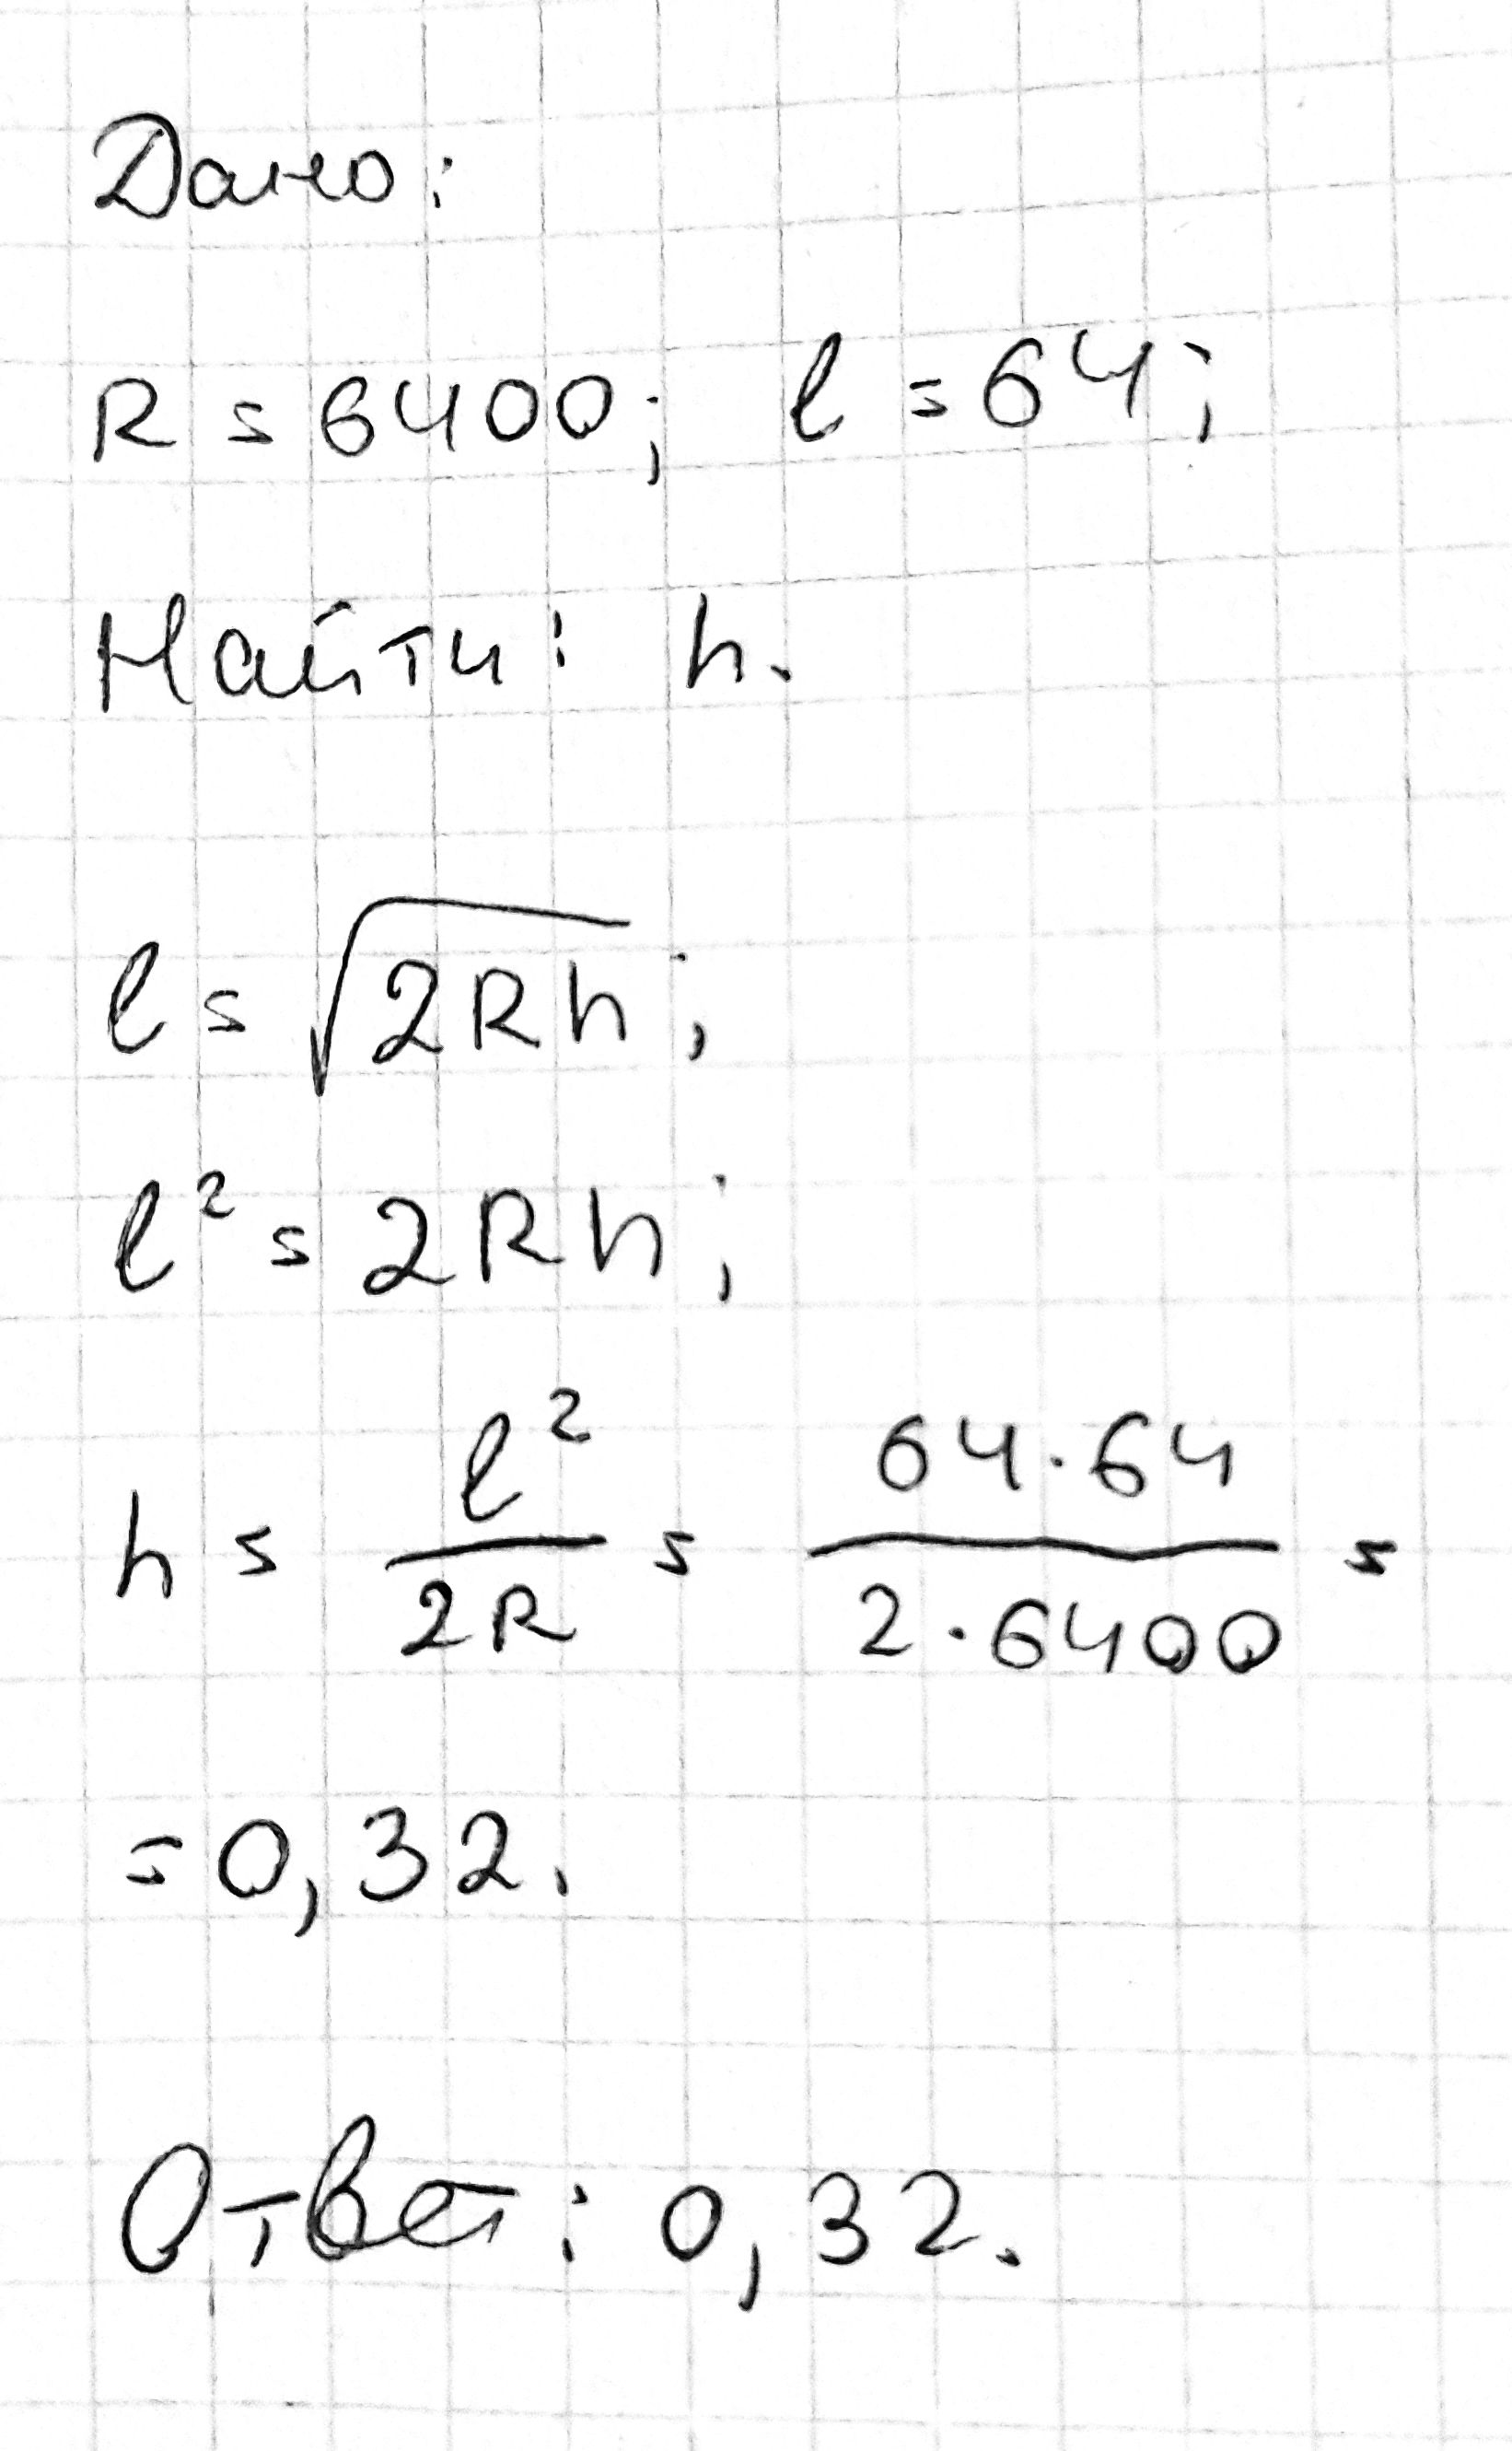 Дано:
R = 6400; l = 64;
Найти: h.
l = √2Rh;
l² = 2Rh;
h = l²/2R = 64·64/2·6400 =
= 0,32.
Ответ: 0,32.